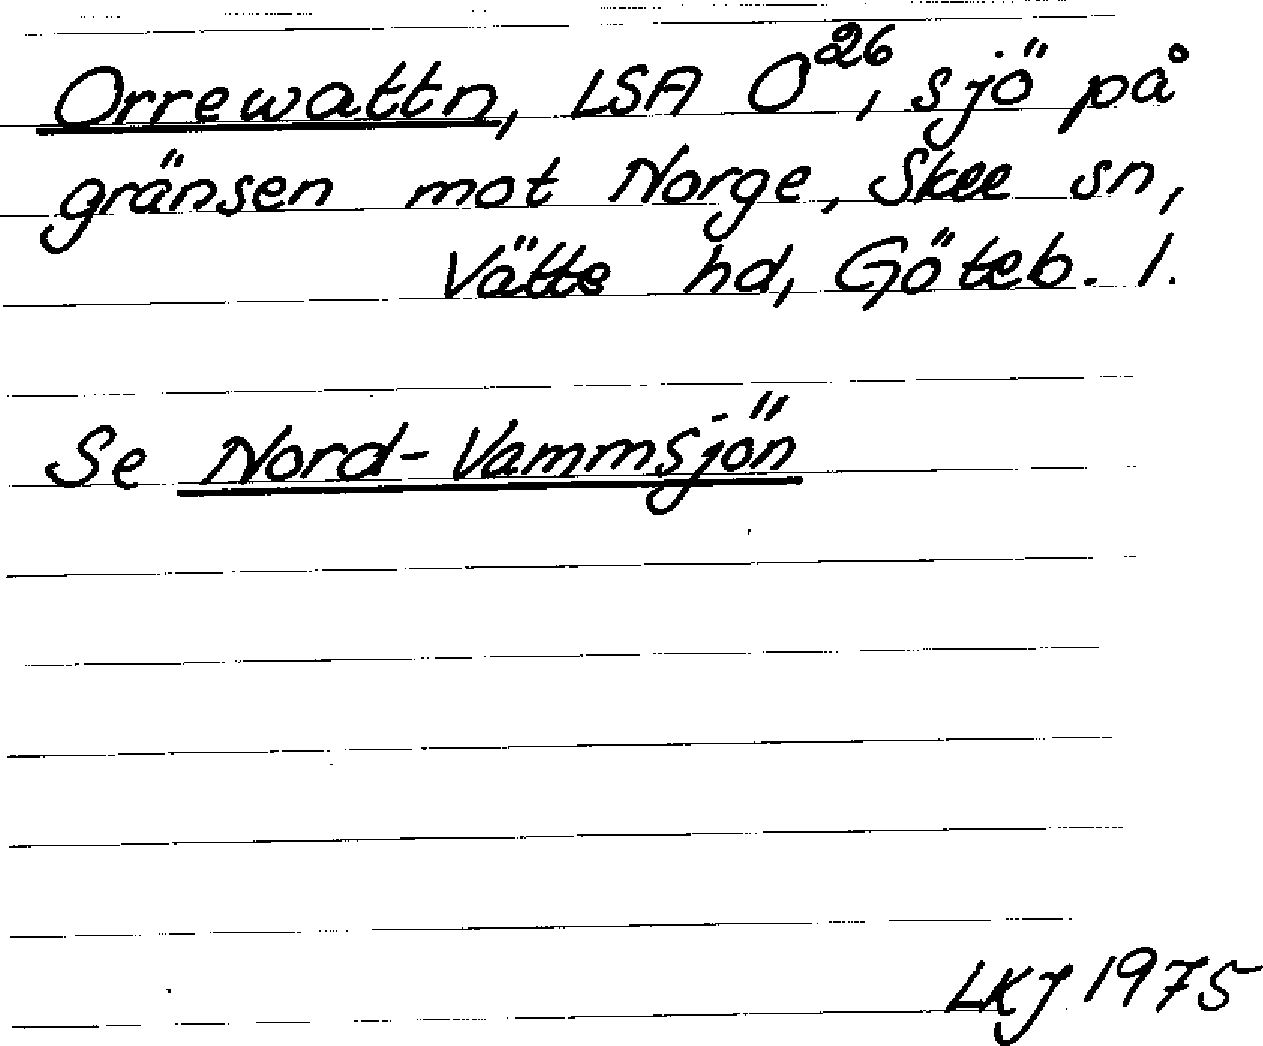 Orrewattn, LSA O²⁶, sjö på
gränsen mot Norge, Skee sn,
Vätte hd, Göteb. l.
Se Nord-Vammsjön
LKJ 1975